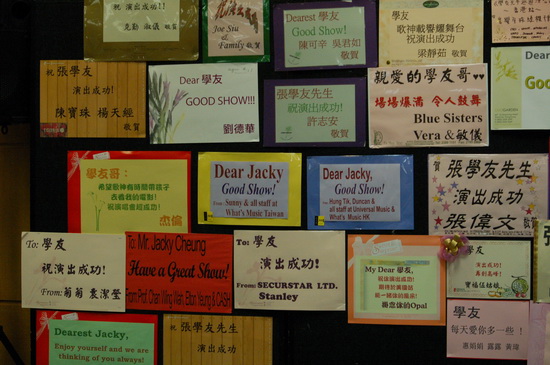 祝演出成功!!
Joe Siu
Family 敬賀
Dearest 學友
Good Show!
陳可辛 吳君如
敬賀
學友
歌神載譽耀舞台
祝演出成功
梁靜茹 敬賀
祝 張學友
演出成功
陳寶珠 楊天經
敬賀
Dear 學友
GOOD SHOW!!!
劉德華
張學友先生
祝演出成功!
許志安
敬賀
親愛的學友哥♥♥
場場爆滿 令人鼓舞
Blue Sisters
Vera & 敏儀
學友哥:
希望動神有時間帶孩子
去看我的電影!
祝演唱會超成功!
杰倫
Dear Jacky
Good Show!
From: Sunny & all staff at
What's Music Taiwan
Dear Jacky,
Good Show!
From: Hung Tik, Duncan &
all staff at Universal Music &
What's Music HK
祝 張學友先生
演出成功
張偉文 敬賀
To: 學友
祝演出成功!
From: 菊菊 袁潔瑩
To: Mr. Jacky Cheung
Have a Great Show!
From: Prof. Chan Wing Wah, Elton Yeung & CASH
To: 學友
演出成功!
From: SECURSTAR LTD.
Stanley
My Dear 學友,
祝您演唱會成功!
學友
演出成功!
學友
每天愛你多一些!
Dearest Jacky,
Enjoy yourself and we are
thinking of you always!
祝 張學友先生
演出成功